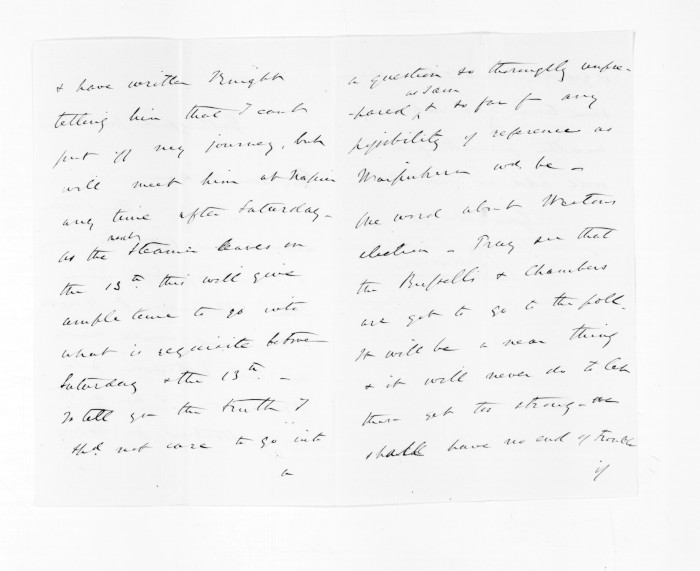 & have written Knight
telling him that I can't
put off my journey, but
will meet him at Napier
any time after Saturday -
as the next Steamer leaves on
the 13th this will give
ample time to go into
what is requisite between
Saturday & the 13th. -
To tell you the truth I
shd not care to go into
a
a question so thoroughly unpre-
-pared as I am & so far from any
possibility of reference as
Waipukurau wd. be -
One word about Weston's
election - Pray see that
the Russells & Chambers
are got to go to the poll.
It will be a near thing
& it will never do to let
them get too strong - we
shall have no end of trouble
if